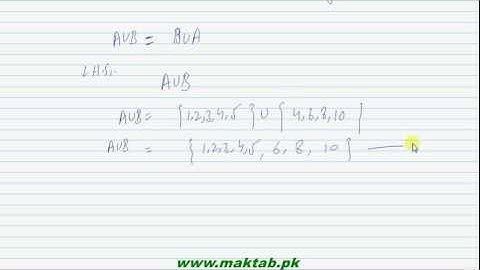 A∪B = B∪A
L.H.S.
A∪B
A∪B = {1,2,3,4,5 } ∪ { 4,6,8,10 }
A∪B = { 1,2,3,4,5, 6, 8, 10 }
www.maktab.pk